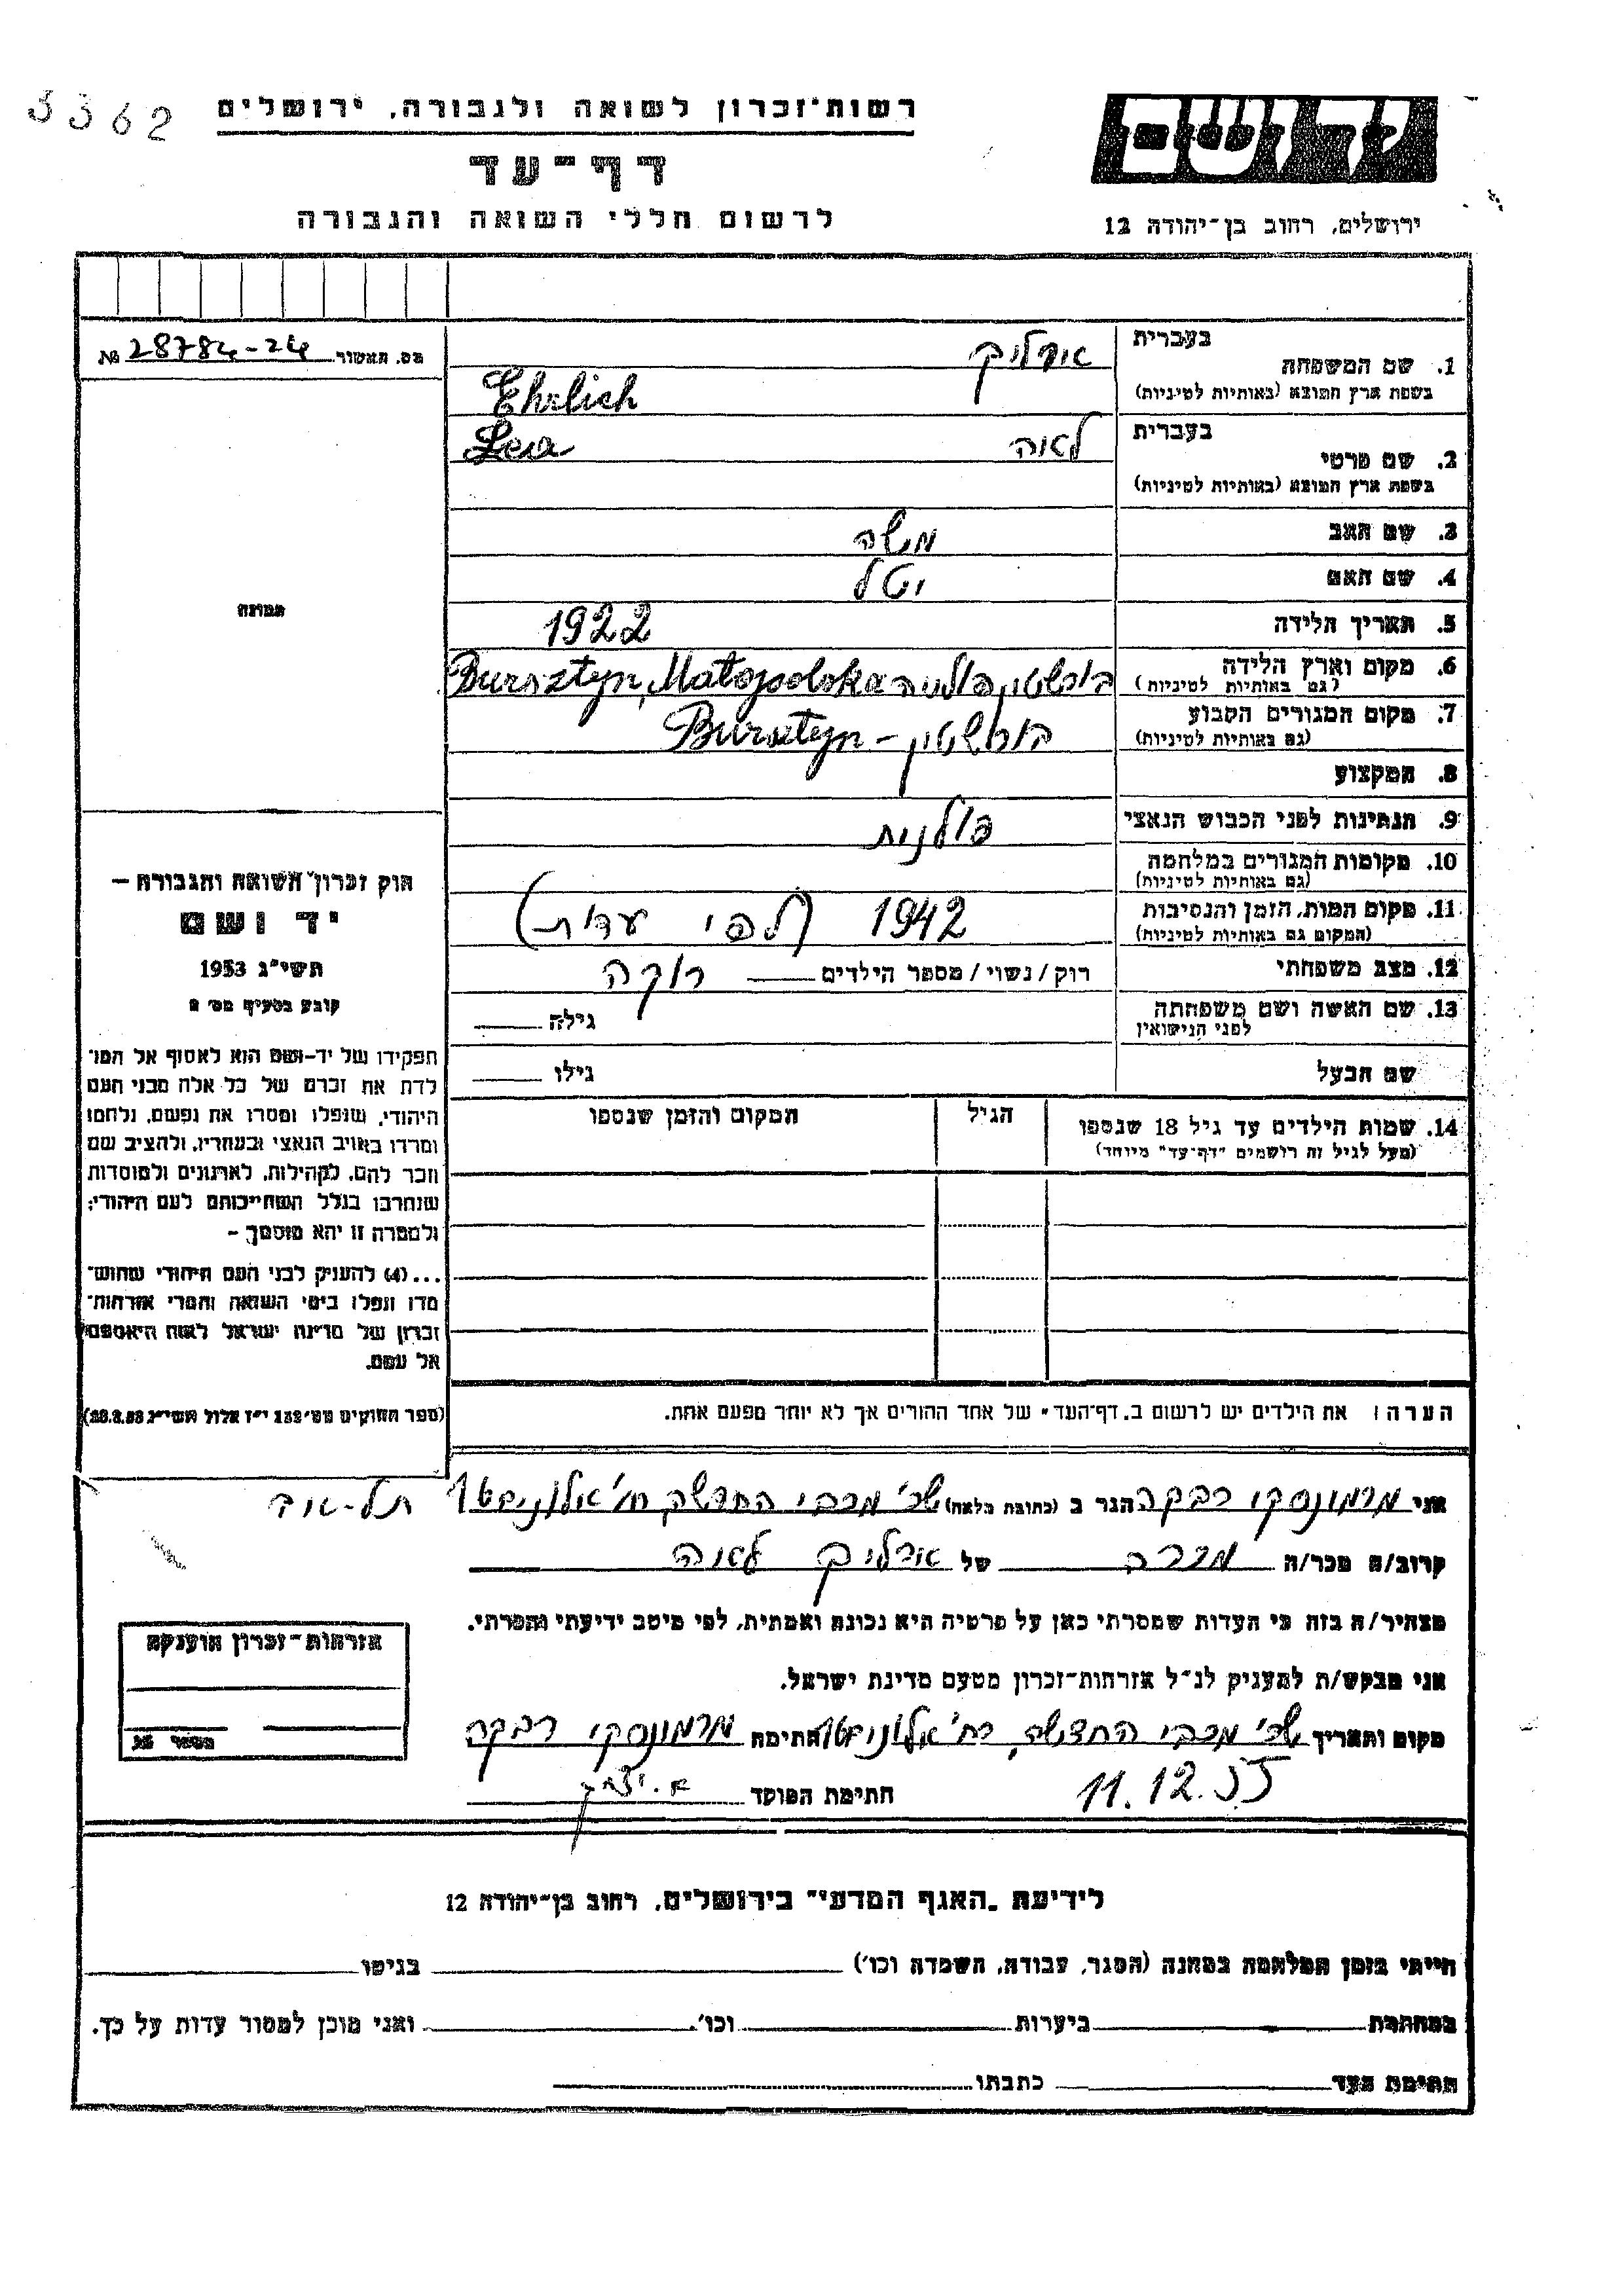 3362
רשות־זכרון לשואה ולגבורה, ירושלים
דף־עד
לרשום חללי השואה והגבורה
יד ושם
ירושלים, רחוב בן־יהודה 12
מס. האשור 28784-24 №
תמונה
1. שם המשפחה בעברית אירליך
בשפת ארץ המוצא (באותיות לטיניות) Ehrlich
2. שם פרטי בעברית לאה Lea
בשפת ארץ המוצא (באותיות לטיניות)
3. שם האב משה
4. שם האם יטל
5. תאריך הלידה 1922
6. מקום וארץ הלידה בורשטין פולניה Bursztyn, Małopolska
(גם באותיות לטיניות)
7. מקום המגורים הקבוע בורשטין – Bursztyn
(גם באותיות לטיניות)
8. המקצוע
9. הנתינות לפני הכבוש הנאצי פולנית
10. מקומות המגורים במלחמה
(גם באותיות לטיניות)
11. מקום המות, הזמן והנסיבות 1942 (לפי עדות)
(המקום גם באותיות לטיניות)
12. מצב משפחתי רוק / נשוי / מספר הילדים רוקה
13. שם האשה ושם משפחתה גילה
לפני הנישואין
שם הבעל גילו
14. שמות הילדים עד גיל 18 שנספו הגיל המקום והזמן שנספו
(מעל לגיל זה רושמים "דף־עד" מיוחד)
הערה: את הילדים יש לרשום ב"דף־העד" של אחד ההורים אך לא יותר מפעם אחת.
חוק זכרון השואה והגבורה –
יד ושם
תשי"ג 1953
קובע בסעיף מס' 2
תפקידו של יד-ושם הוא לאסוף אל המו־
לדת את זכרם של כל אלה מבני העם
היהודי, שנפלו ומסרו את נפשם, נלחמו
ומרדו באויב הנאצי ובעוזריו, ולהציב שם
וזכר להם, לקהילות, לארגונים ולמוסדות
שנחרבו בגלל השתייכותם לעם היהודי;
ולמטרה זו יהא מוסמך –
...(4) להעניק לבני העם היהודי שהוש־
מדו ונפלו בימי השואה והמרי אזרחות־
זכרון של מדינת ישראל לאות היאספם
אל עמם.
(ספר החוקים מס' 132 י"ז אלול תשי"ג 28.8.53)
אני מרמונסקי רבקה הגר ב (כתובת מלאה) שכ' מכבי החדשה תל-אביב
קרוב/ה מכר/ה מכרה של אירליך לאה
מצהיר/ה בזה כי העדות שמסרתי כאן על פרטיה היא נכונה ואמתית, לפי מיטב ידיעתי והכרתי.
אני מבקש/ת להעניק לנ"ל אזרחות־זכרון מטעם מדינת ישראל.
מקום ותאריך שכ' מכבי החדשה, חתימה מרמונסקי רבקה
11.12.55 חתימת הפוקד
אזרחות־זכרון הוענקה
מספר
לידיעת "האגף המדעי" בירושלים, רחוב בן־יהודה 12
הייתי בזמן המלחמה במחנה (הסגר, עבודה, השמדה וכו') בגיטו
במחתרת ביערות וכו'. ואני מוכן למסור עדות על כך.
חתימת העד כתבתו